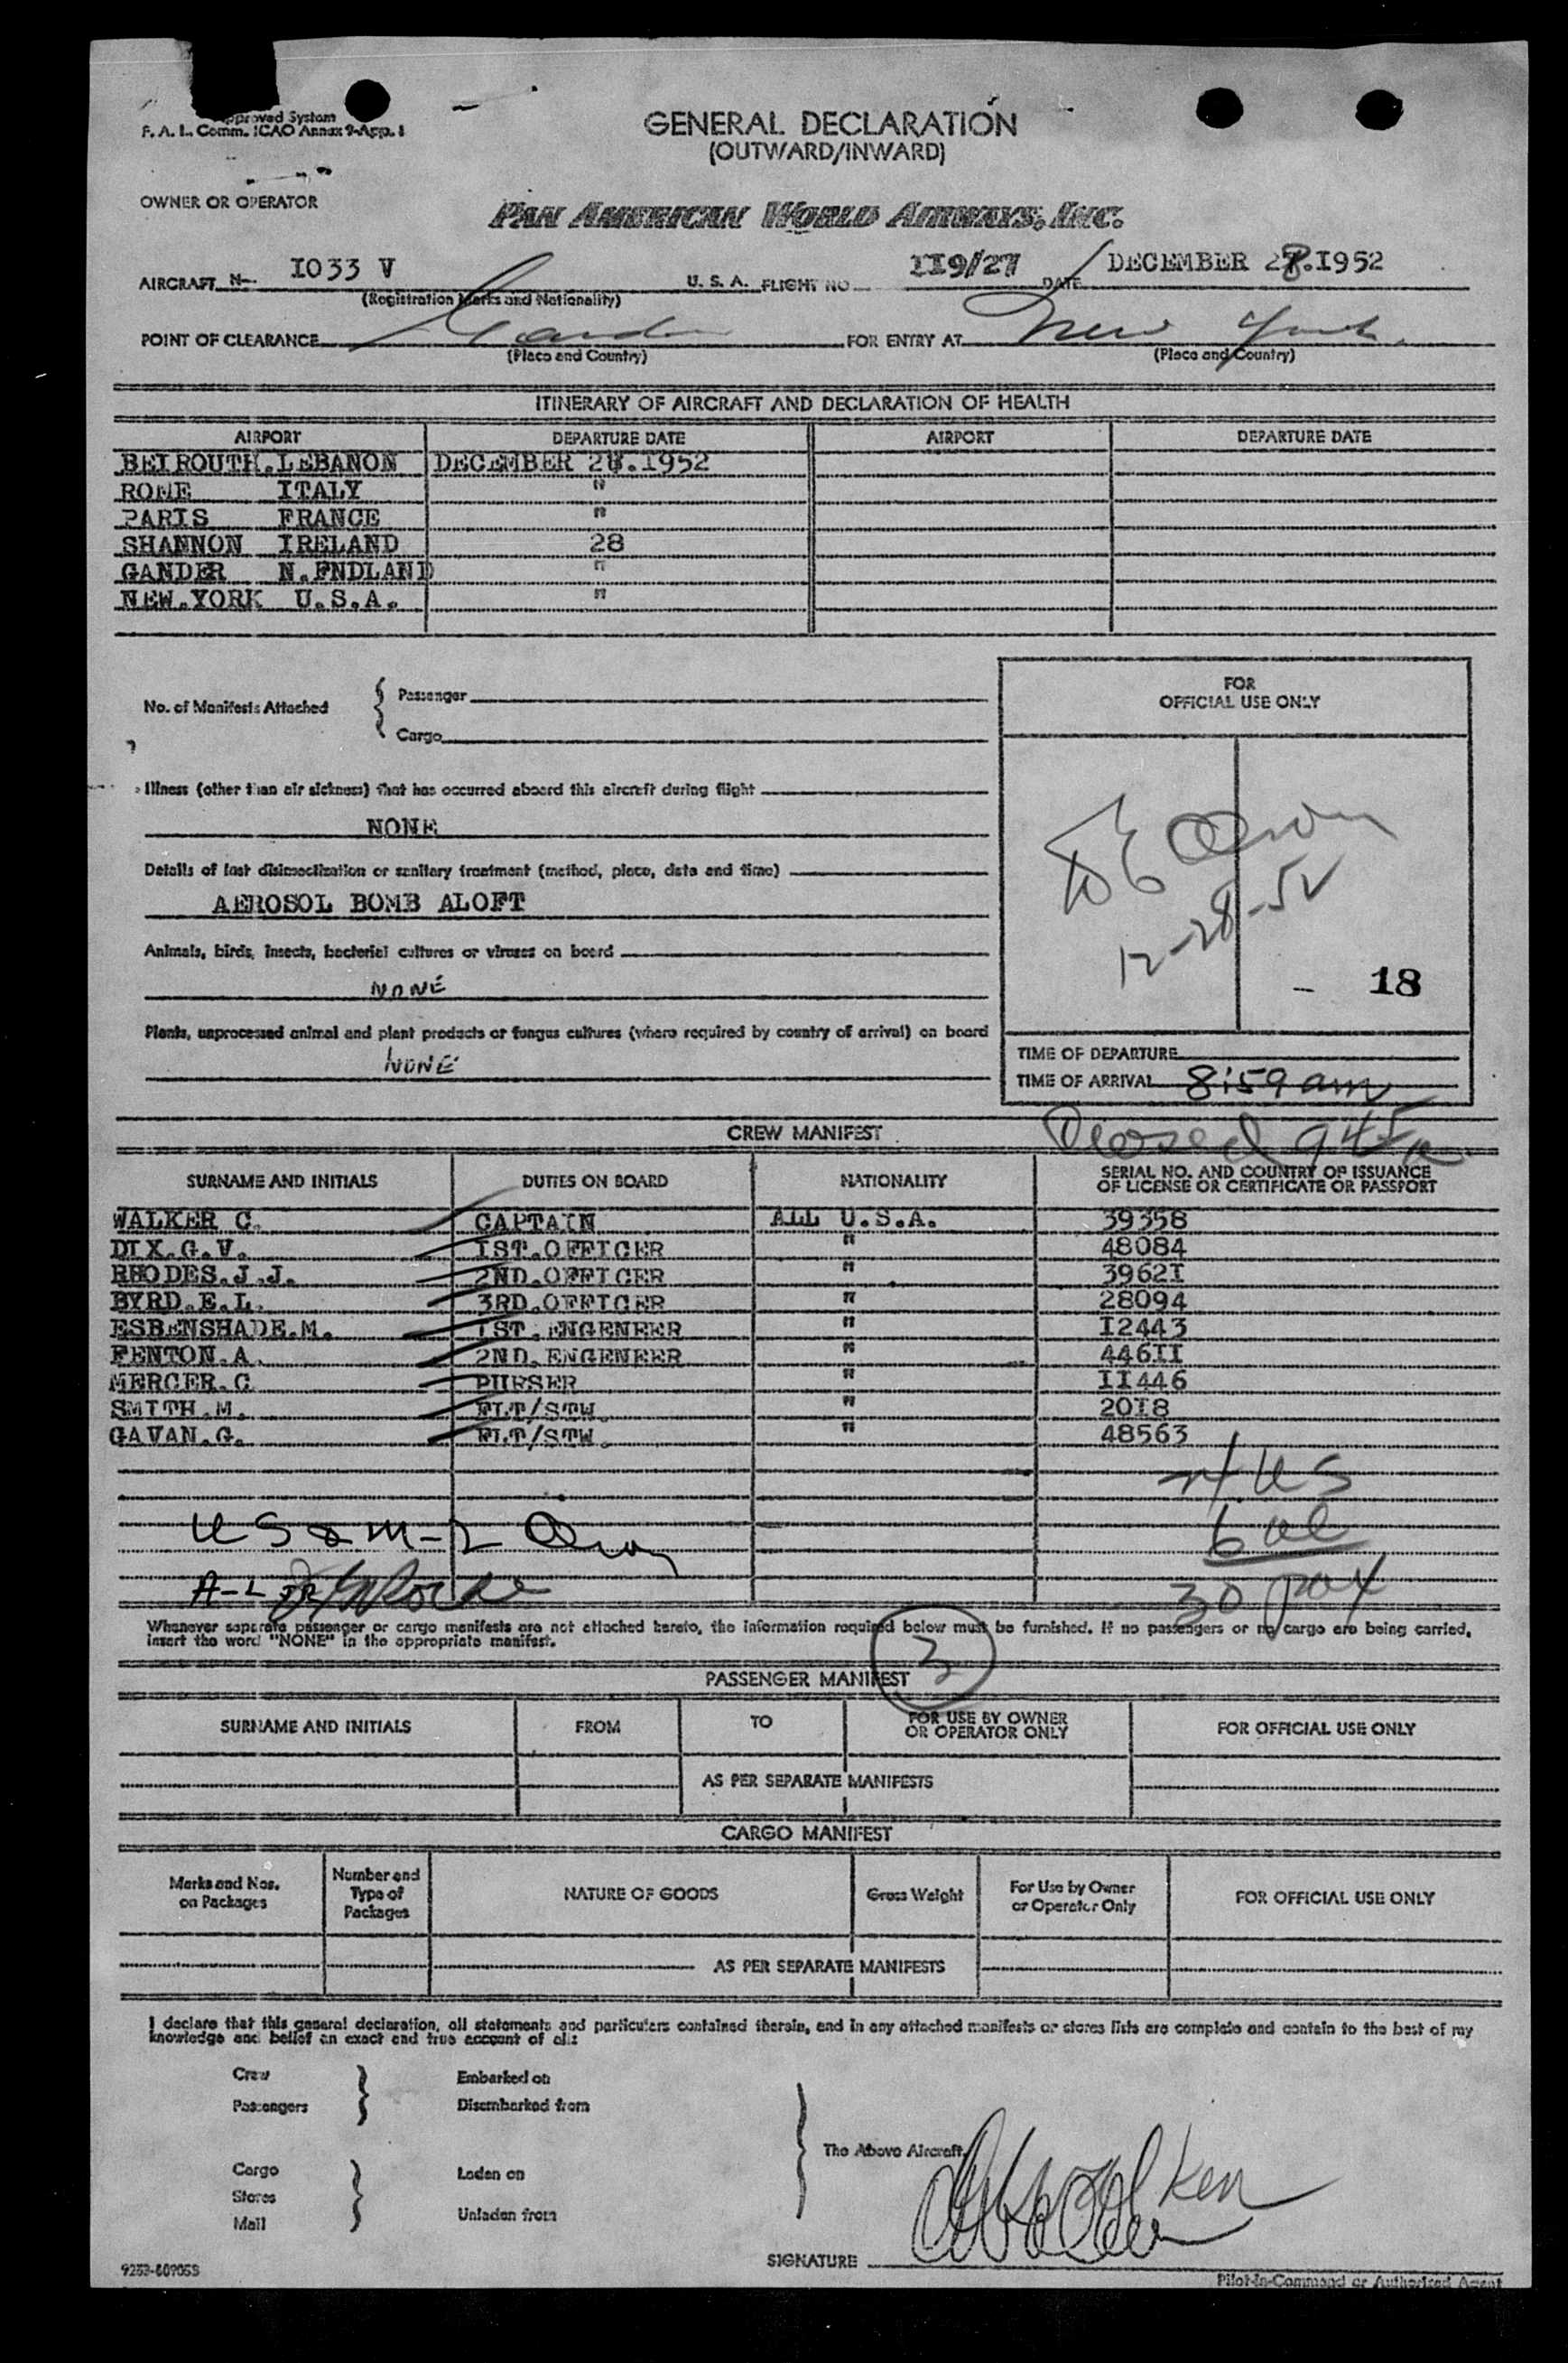 pproved System
F. A. L. Comm. ICAO Annex 9-App. 1
GENERAL DECLARATION
(OUTWARD/INWARD)
OWNER OR OPERATOR
PAN AMERICAN WORLD AIRWAYS, INC.
AIRCRAFT N- I033 V U. S. A. FLIGHT NO. II9/27 DATE DECEMBER 28.I952
(Registration Marks and Nationality)
POINT OF CLEARANCE Gander FOR ENTRY AT New York.
(Place and Country) (Place and Country)
ITINERARY OF AIRCRAFT AND DECLARATION OF HEALTH
AIRPORT DEPARTURE DATE AIRPORT DEPARTURE DATE
BEIROUTH.LEBANON DECEMBER 2 .I952
ROME ITALY "
PARIS FRANCE "
SHANNON IRELAND 28
GANDER N.FNDLAND "
NEW.YORK U.S.A. "
No. of Manifests Attached { Passenger
Cargo
FOR
OFFICIAL USE ONLY
Illness (other than air sickness) that has occurred aboard this aircraft during flight
NONE
Details of last disinsectization or sanitary treatment (method, place, date and time)
AEROSOL BOMB ALOFT
12-28-52
Animals, birds, insects, bacterial cultures or viruses on board
NONE
- 18
Plants, unprocessed animal and plant products or fungus cultures (where required by country of arrival) on board
NONE
TIME OF DEPARTURE
TIME OF ARRIVAL 8:59 am
CREW MANIFEST
SURNAME AND INITIALS DUTIES ON BOARD NATIONALITY SERIAL NO. AND COUNTRY OF ISSUANCE
OF LICENSE OR CERTIFICATE OR PASSPORT
WALKER C. CAPTAIN ALL U.S.A. 39358
DIX.G.V. IST.OFFICER " 48084
RHODES.J.J. 2ND.OFFICER " 3962I
BYRD.E.L. 3RD.OFFICER " 28094
ESBENSHADE.M. IST.ENGENEER " I2443
FENTON.A. 2ND.ENGENEER " 446II
MERCER.C PURSER " II446
SMITH.M. FLT/STW. " 20I8
GAVAN.G. FLT/STW. " 48563
US
30 pax
A-L
Whenever separate passenger or cargo manifests are not attached hereto, the information required below must be furnished. If no passengers or no cargo are being carried,
insert the word "NONE" in the appropriate manifest.
3
PASSENGER MANIFEST
SURNAME AND INITIALS FROM TO FOR USE BY OWNER
OR OPERATOR ONLY FOR OFFICIAL USE ONLY
AS PER SEPARATE MANIFESTS
CARGO MANIFEST
Marks and Nos.
on Packages Number and
Type of
Packages NATURE OF GOODS Gross Weight For Use by Owner
or Operator Only FOR OFFICIAL USE ONLY
AS PER SEPARATE MANIFESTS
I declare that this general declaration, all statements and particulars contained therein, and in any attached manifests or stores lists are complete and contain to the best of my
knowledge and belief an exact and true account of all:
Crew Embarked on
Passengers Disembarked from
The Above Aircraft.
Cargo Laden on
Stores
Mail Unladen from
SIGNATURE
Pilot-in-Command or Authorized Agent